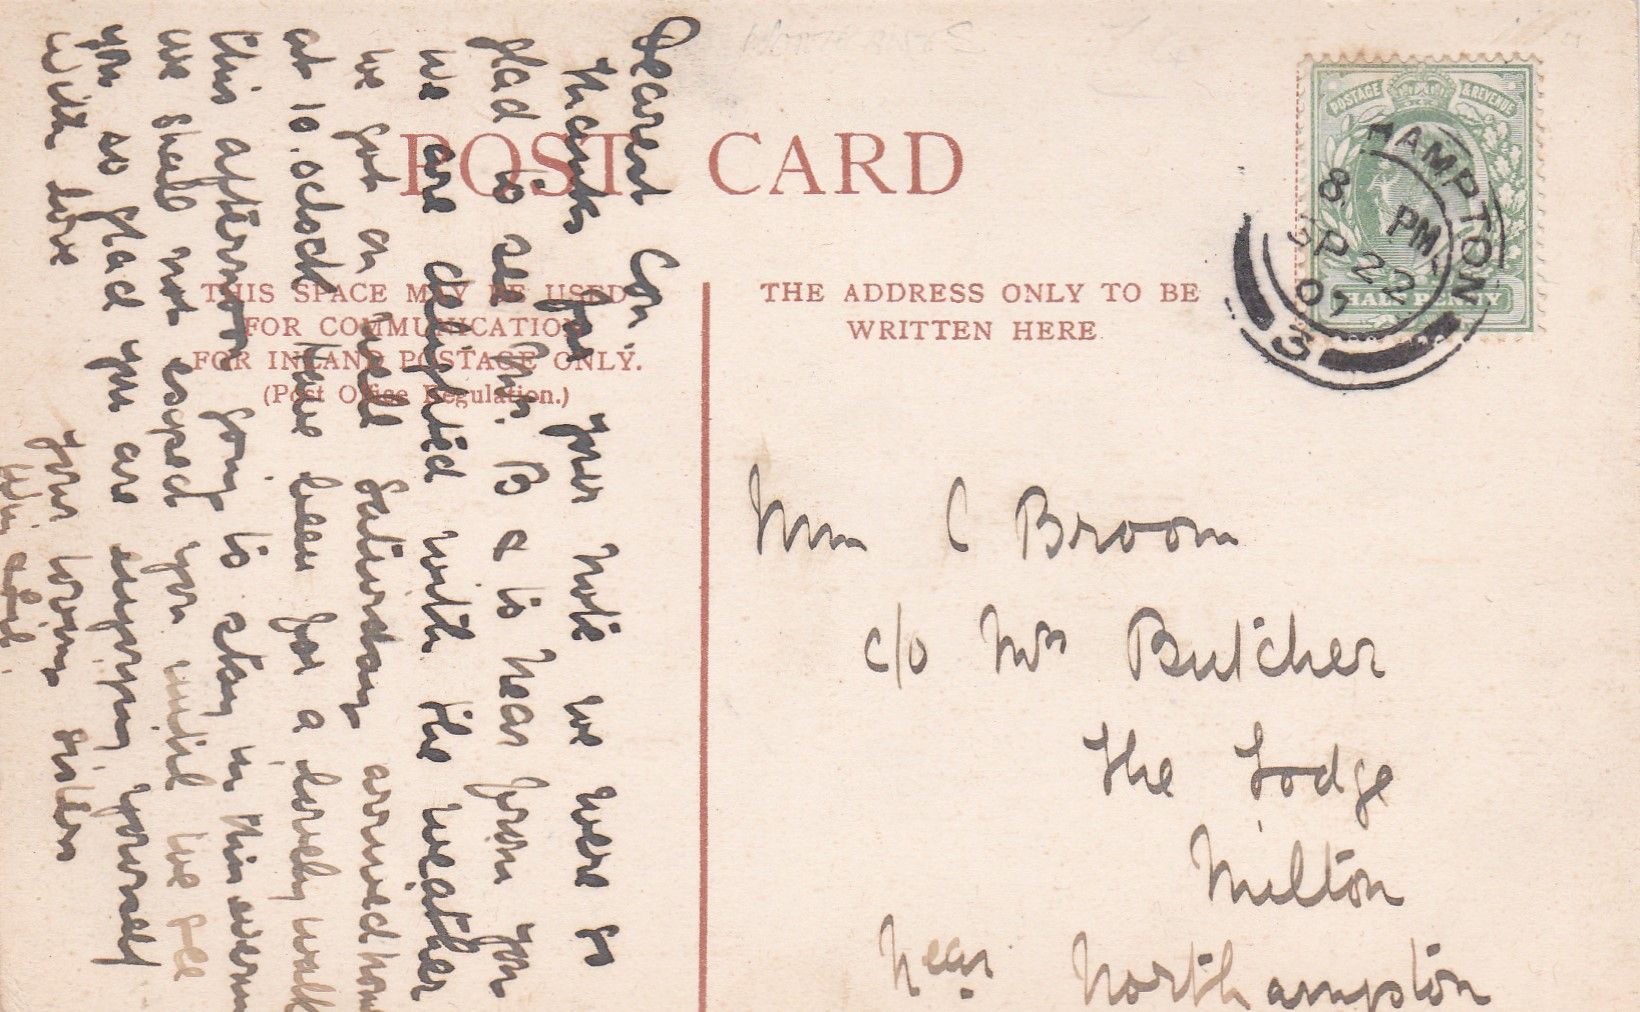 POST CARD
THIS SPACE MAY BE USED
FOR COMMUNICATION
FOR INLAND POSTAGE ONLY.
(Post Office Regulation.)
THE ADDRESS ONLY TO BE
WRITTEN HERE
POSTAGE & REVENUE
HALF PENNY
HAMPTON
8 PM
SP 22
07
Dearest Con.
Thanks for your note we were so
glad to see Mr. B & to hear from you
we are delighted with the weather
we got on well Saturday arrived home
at 10.oclock have been for a lovely walk
this afternoon going to stay in this evening
we shall not expect you until we see
you so glad you are enjoying yourself
With love
your loving sister
C Broom
c/o Mrs Butcher
The Lodge
Milton
Near Northampton